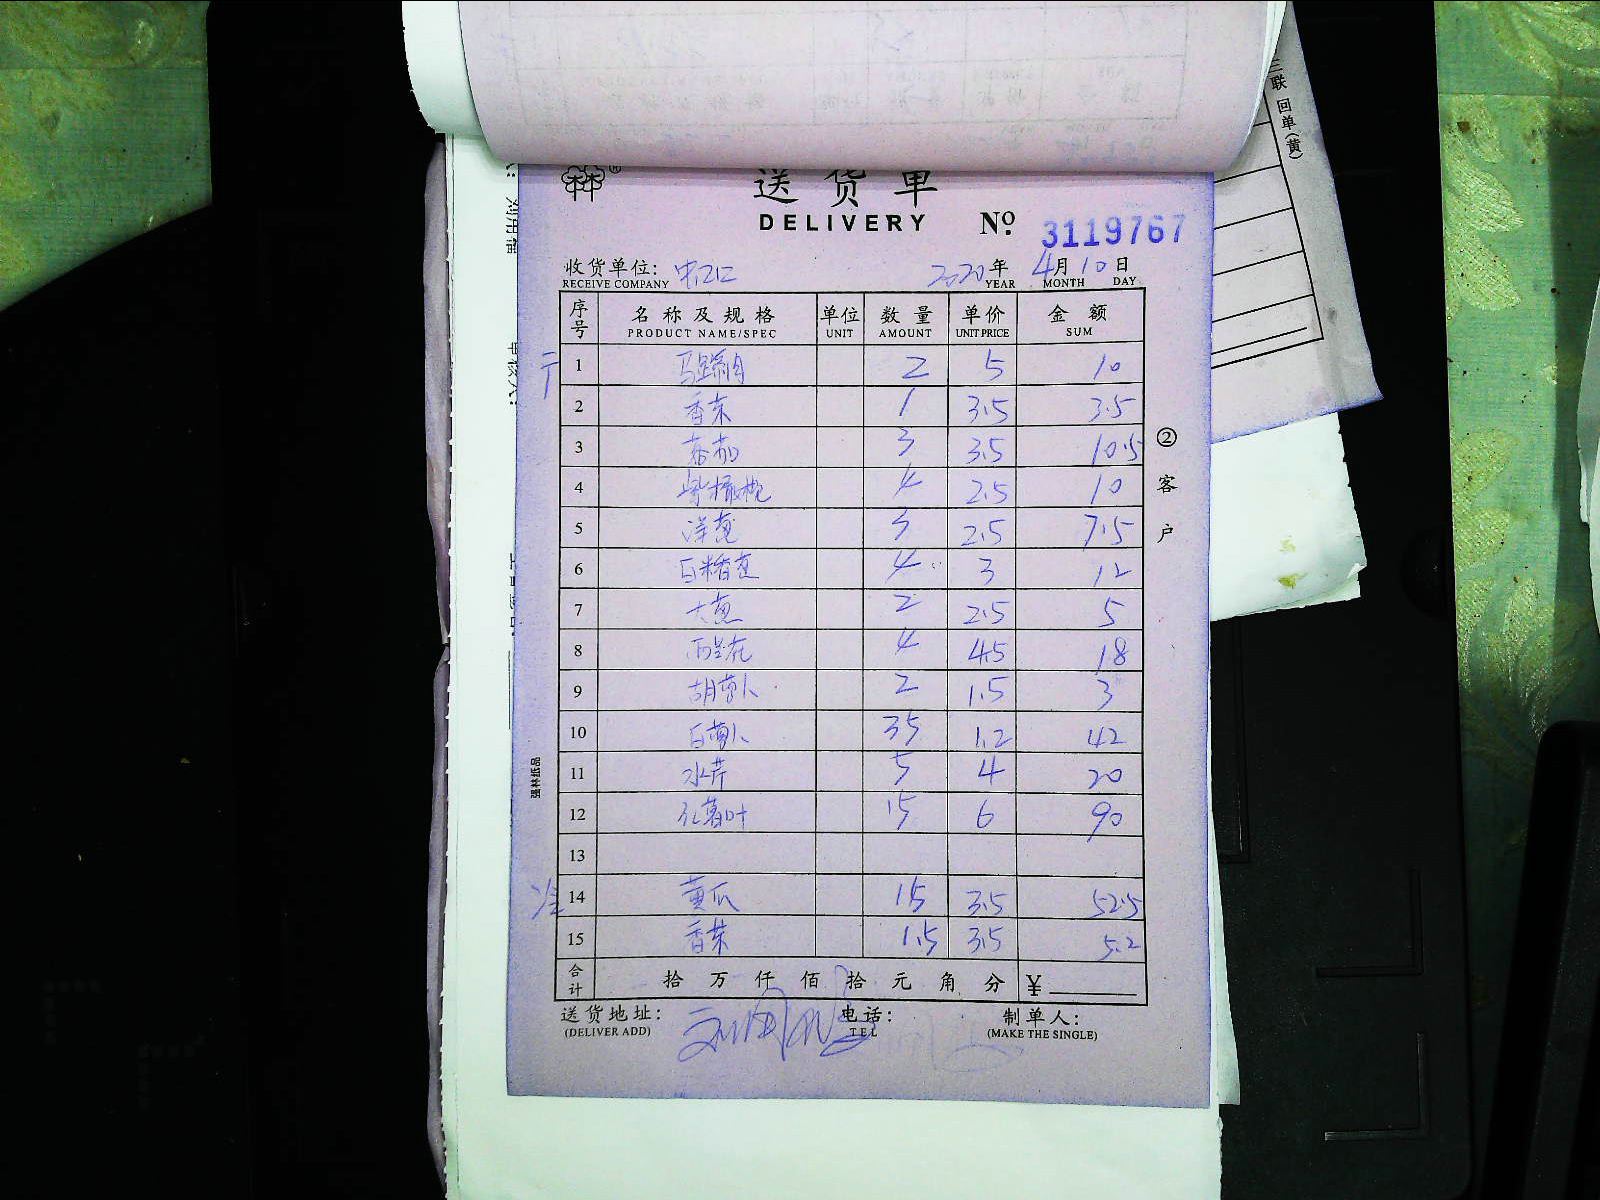 三联 回单(黄)
送货单
DELIVERY № 3119767
收货单位: 2020年 4月 10日
RECEIVE COMPANY YEAR MONTH DAY
序号 名称及规格 单位 数量 单价 金额
PRODUCT NAME/SPEC UNIT AMOUNT UNIT PRICE SUM
1 马蹄肉 2 5 10
2 香菜 1 3.5 3.5
3 3 3.5 10.5
4 4 2.5 10
5 洋葱 3 2.5 7.5
6 4 3 12
7 大葱 2 2.5 5
8 西兰花 4 4.5 18
9 胡萝卜 2 1.5 3
10 白萝卜 35 1.2 42
11 水芹 5 4 20
12 红薯叶 15 6 90
13
14 黄瓜 15 3.5 52.5
15 香菜 1.5 3.5 5.2
合计 拾 万 仟 佰 拾 元 角 分 ¥
送货地址: 电话: 制单人:
(DELIVER ADD) TEL (MAKE THE SINGLE)
② 客户
强林纸品